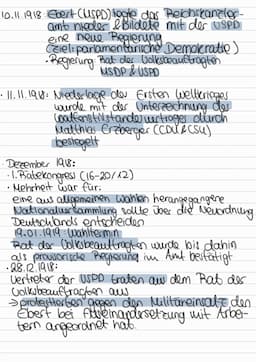 10.11.1918: Ebert (MSPD) legte das Reichskanzler-
amt nieder & bildete mit der USPD
eine neue Regierung
(Ziel: parlamentarische Demokratie)
- Regierung: Rat der Volksbeauftragten
MSPD & USPD
· 11.11.1918: Niederlage des Ersten Weltkrieges
wurde mit der Unterzeichnung des
Waffenstillstandsvertrages durch
Matthias Erzberger (CDU & CSU)
besiegelt
· Dezember 1918:
· 1. Rätekongress (16-20/12)
· Mehrheit war für:
eine aus allgemeinen Wahlen herangegangene
Nationalversammlung sollte über die Neuordnung
Deutschlands entscheiden
19.01.1919 Wahltermin
Rat der Volksbeauftragten wurde bis dahin
als provisorische Regierung im Amt bestätigt
· 28.12.1918:
Vertreter der USPD traten aus dem Rat der
Volksbeauftragten aus
→ protestierten gegen den Militäreinsatz, den
Ebert bei Auseinandersetzung mit Arbei-
tern angeordnet hat.